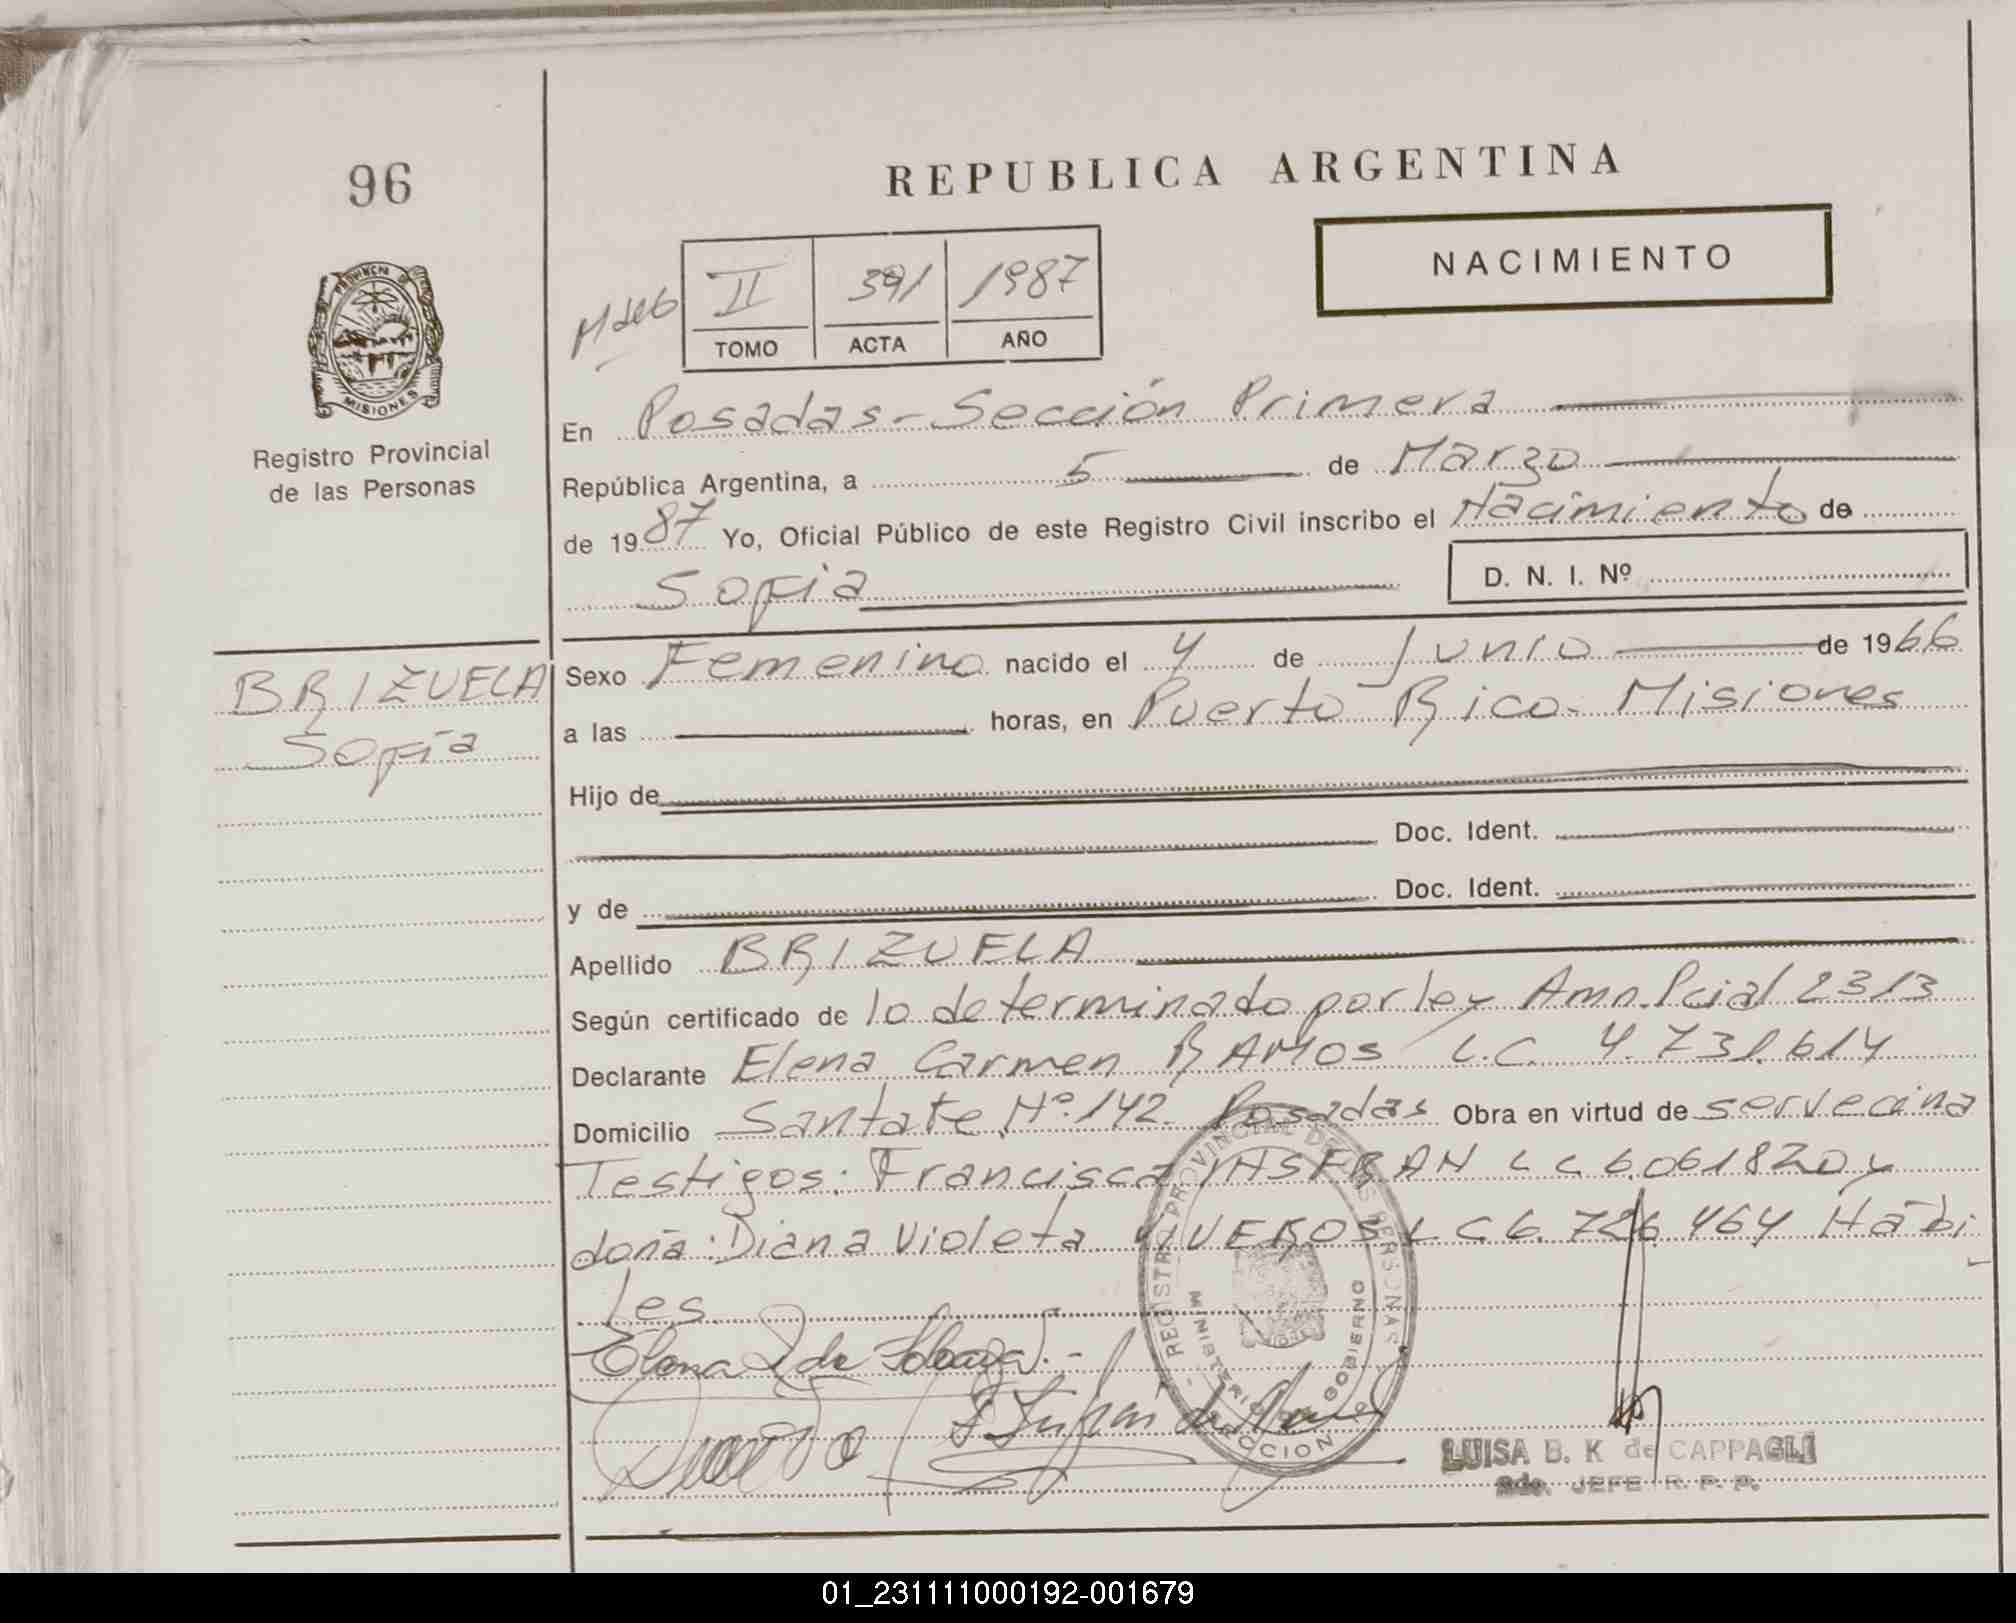 96
REPUBLICA ARGENTINA
NACIMIENTO
II 391 1987
TOMO ACTA AÑO
PROVINCIA DE
MISIONES
Registro Provincial
de las Personas
En Posadas - Sección Primera
República Argentina, a 5 de Marzo
de 1987 Yo, Oficial Público de este Registro Civil inscribo el Nacimiento de
Sofia
D. N. I. Nº
BRIZUELA
Sofia
Sexo Femenino nacido el 4 de Junio de 1966
a las horas, en Puerto Rico - Misiones
Hijo de
Doc. Ident.
y de Doc. Ident.
Apellido BRIZUELA
Según certificado de lo determinado por ley Amn. Pcial 2313
Declarante Elena Carmen RAMOS L.C. 4.731.614
Domicilio Santa Fe Nº 142 Posadas Obra en virtud de ser vecina
Testigos: Francisca INSFRAN L C 6.061820 y
doña: Diana Violeta VIVEROS L C 6.726.464 Hábi
les
REGISTRO PROVINCIAL DE LAS PERSONAS
MINISTERIO DE GOBIERNO
LUISA B. K de CAPPAGLI
2do. JEFE R. P. P.
01_231111000192-001679